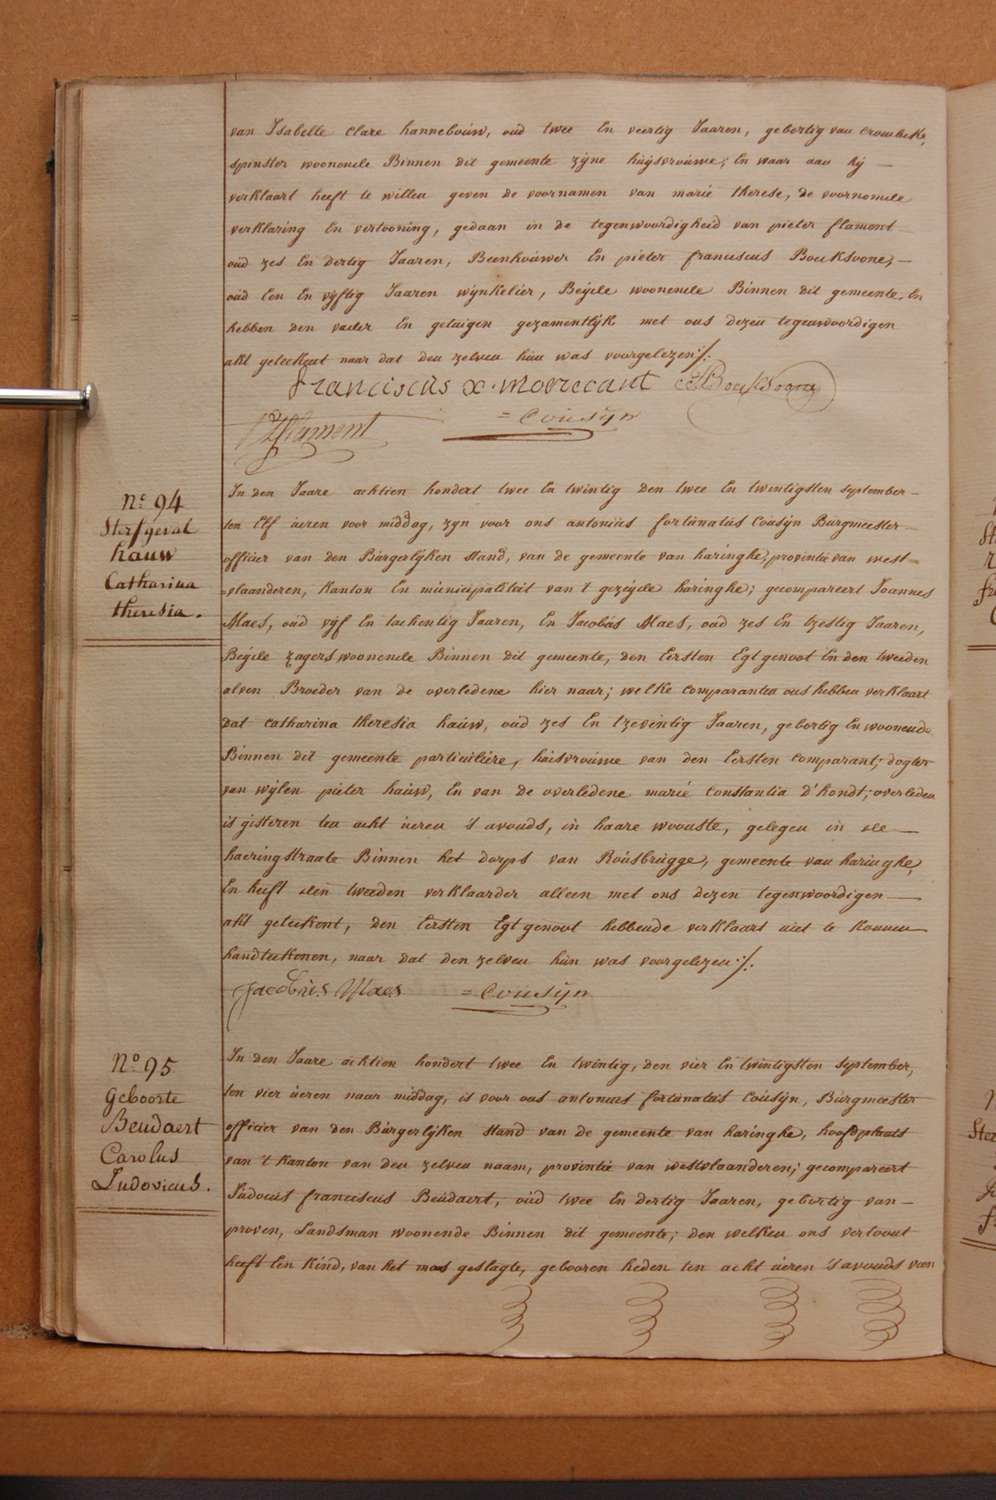 van Isabelle Clare hannebouw, oud twee En veertig Jaaren, gebortig van Crombeke,
spinster woonende Binnen dit gemeente zyne huysvrouwe; En waar aan hy —
verklaart heeft te willen geven de voornamen van marie therese, de voornomde
verklaring En vertooning, gedaan in de tegenwoordigheid van pieter flament
oud zes En dertig Jaaren, Beenhouwer En pieter franciscus Boucksoone, —
oud Een En vyftig Jaaren wynkelier, Beyde woonende Binnen dit gemeente, En
hebben den vader En getuigen gezamentlyk met ons dezen tegenwoordigen
akt geteekent naar dat den zelven hun was voorgelezen ./.
Franciscus x. morrecant
P Flament
= Cousyn
N.º 94
Sterfgeval
hauw
Catharina
theresia.
In den Jaare achtien hondert twee En twintig den twee En twintigsten september —
ten Elf ueren voor middag, zyn voor ons antonius fortunatus Cousyn Burgmeester
officier van den Burgerlyken stand, van de gemeente van haringhe, provintie van west=
vlaanderen, kanton En municipaliteit van 't gezeyde haringhe; gecompareert Joannes
Maes, oud vyf En tachentig Jaaren, En Jacobus Maes, oud zes En tzestig Jaaren,
Beyde zagers woonende Binnen dit gemeente, den Eersten Egtgenoot En den tweeden
alven Broeder van de overledene hier naar; welke comparanten ons hebben verklaart
dat catharina theresia hauw, oud zes En tzeventig Jaaren, gebortig En woonende
Binnen dit gemeente particuliere, huisvrouwe van den Eersten comparant; dogter
van wylen pieter hauw, En van de overledene marie Constantia d'hondt; overleden
is gisteren ten acht ueren 's avonds, in haare wooste, gelegen in de —
haeringstraate Binnen het dorps van Rousbrugge, gemeente van haringhe,
En heeft den tweeden verklaarder alleen met ons dezen tegenwoordigen —
akt geteekent, den Eersten Egtgenoot hebbende verklaart niet te konnen
handteekenen, naar dat den zelven hun was voorgelezen ./.
Jacobus Maes = Cousyn
N.º 95
Geboorte
Beudaert
Carolus
Ludovicus.
In den Jaare achtien hondert twee En twintig, den vier En twintigsten september,
ten vier ueren naar middag, is voor ons antonius fortunatus Cousyn, Burgmeester
officier van den Burgerlyken stand van de gemeente van haringhe, hoofdplaats
van 't kanton van den zelven naam, provintie van westvlaanderen; gecompareert
Judocus franciscus Beudaert, oud twee En dertig Jaaren, gebortig van —
proven, Landsman woonende Binnen dit gemeente; den welken ons vertoont
heeft Een Kind, van het mans geslagte, gebooren heden ten acht ueren 's avonds van